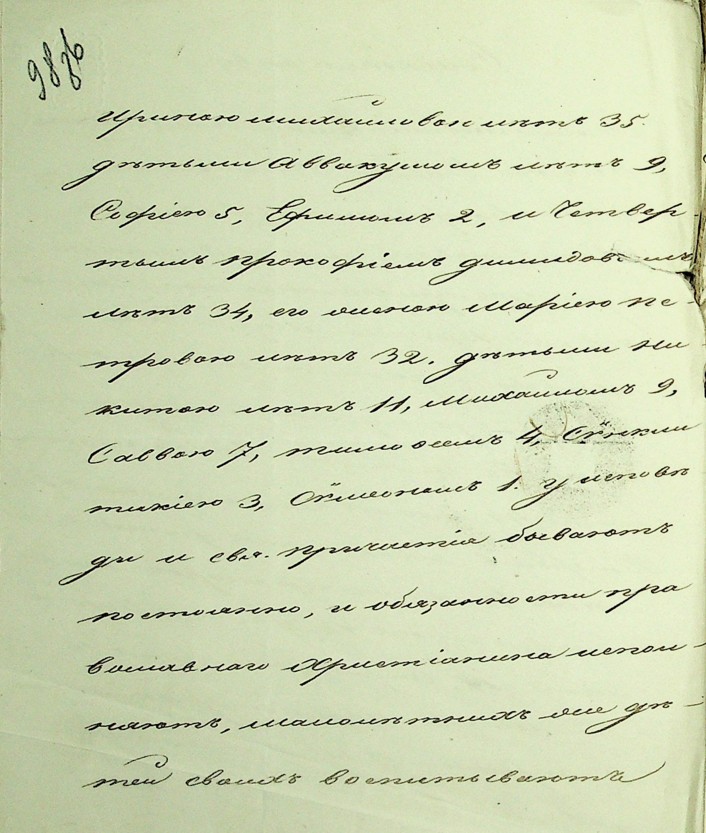 98
86
Ириною Михайловой лѣтъ 35.
дѣтьми Аввакумомъ лѣтъ 9,
Софіею 5, Ефимомъ 2, и Четвер-
тымъ Прокофіемъ Димидовымъ
лѣтъ 34, его женою Маріею Пе-
тровою лѣтъ 32. дѣтьми Ни-
китою лѣтъ 11, Михайломъ 9,
Саввою 7, тимоѳеемъ 4, Сѵнкли
тикіею 3, Сѵмеономъ 1. у исповѣ
ди и свя. причастія бываютъ
постоянно, и обязанности пра
вославнаго Христіанина испол-
няютъ, малолѣтнихъ же дѣ-
тей своихъ воспитываютъ